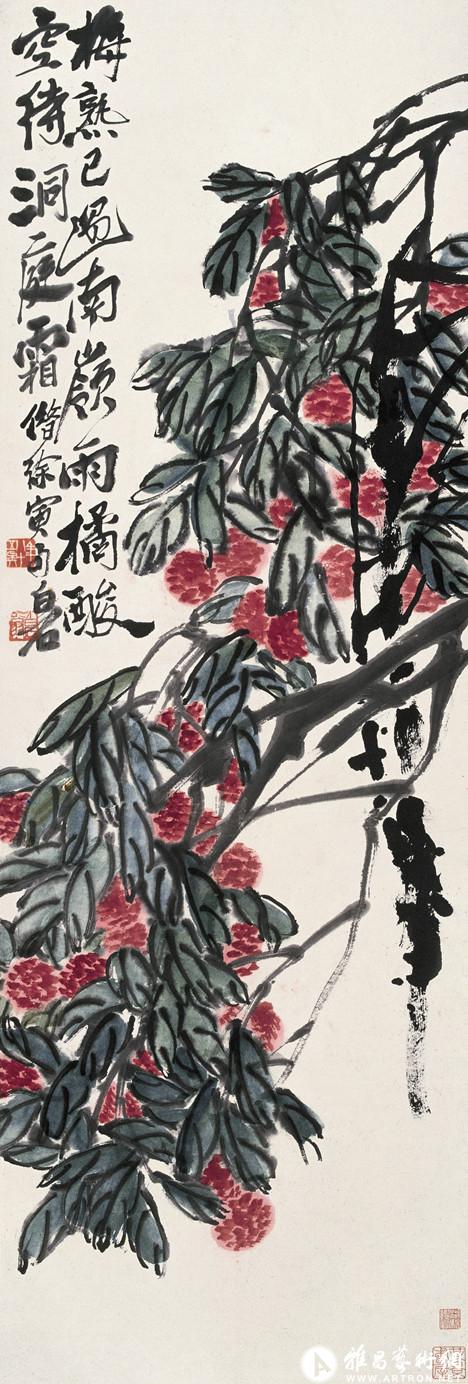 梅熟已過南嶺雨橘酸
空待洞庭霜借徐寅句白石
雅昌藝術網
WWW.ARTRON.NET